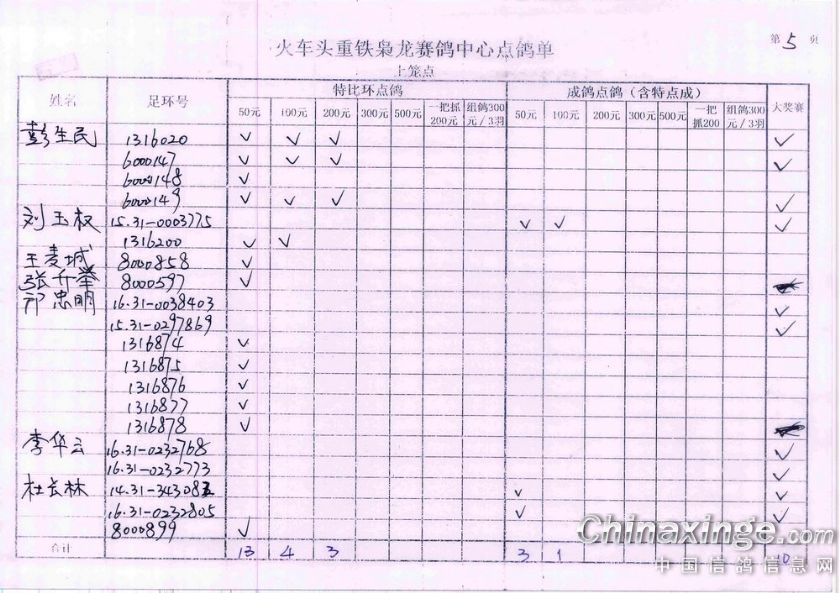 火车头重铁枭龙赛鸽中心点鸽单
第 5 页
上笼点
姓名 足环号 特比环点鸽 成鸽点鸽（含特点成） 大奖赛
50元 100元 200元 300元 500元 一把抓200元 组鸽300元/3羽 50元 100元 200元 300元 500元 一把抓200 组鸽300元/3羽
彭生民 1316020 ✓ ✓ ✓ ✓
6000147 ✓ ✓ ✓ ✓
6000148 ✓
6000149 ✓ ✓ ✓ ✓
刘玉权 15.31-0003775 ✓ ✓ ✓
1316200 ✓ ✓
王麦城 8000858 ✓
张升举 8000597 ✓
邝忠明 16.31-0038403 ✓
15.31-0297869 ✓
1316874 ✓
1316875 ✓
1316876 ✓
1316877 ✓
1316878 ✓
李华云 16.31-0232768 ✓
16.31-0232773 ✓
杜长林 14.31-343083 ✓ ✓
16.31-0232805 ✓ ✓
8000899 ✓
合计 13 4 3 3 1 10
Chinaxinge.com
中国信鸽信息网